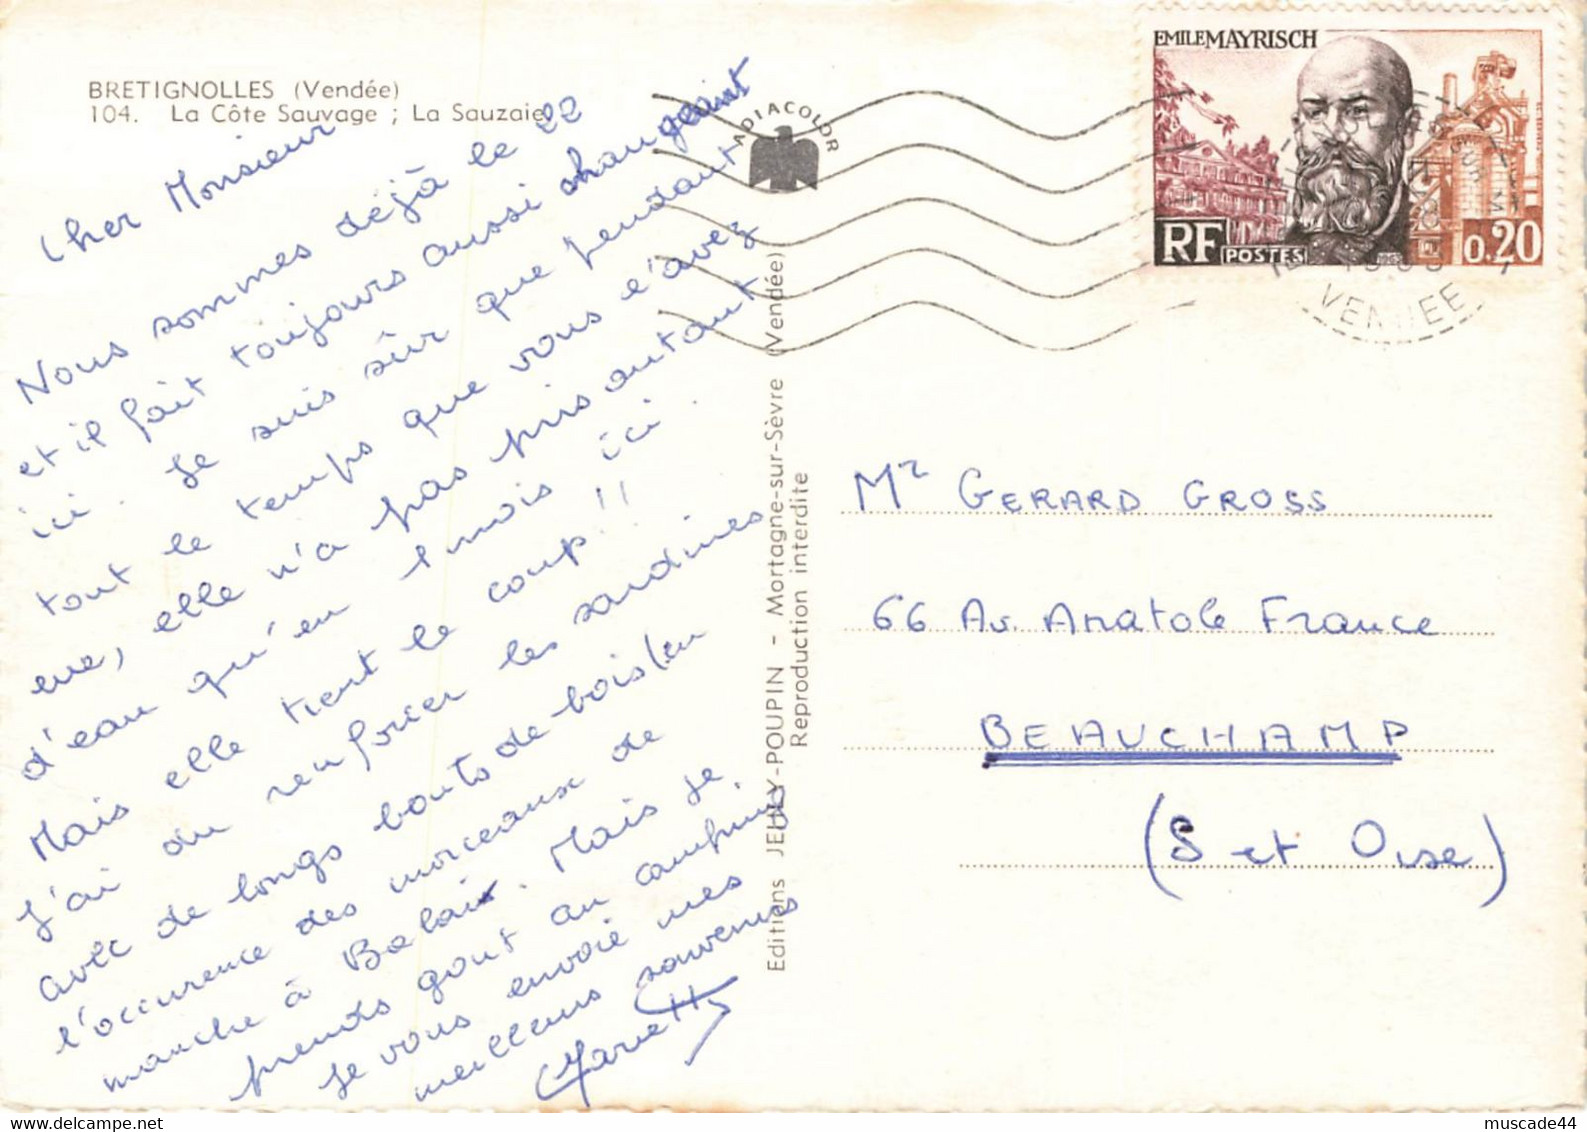 BRETIGNOLLES (Vendée)
104. La Côte Sauvage ; La Sauzaie
Cher Monsieur
Nous sommes déjà le 22
et il fait toujours aussi changeant
ici. Je suis sûr que pendant
tout le temps que vous l'avez
eue, elle n'a pas pris autant
d'eau qu'en 1 mois ici.
Mais elle tient le coup!!
J'ai du renforcer les sardines
avec de longs bouts de bois (en
l'occurence des morceaux de
manche à Balai. Mais je
prends gout au camping.
Je vous envoie mes
meilleurs souvenirs
ADIACOLOR
Editions JEHLY-POUPIN - Mortagne-sur-Sèvre (Vendée)
Reproduction interdite
EMILE MAYRISCH
RF POSTES 0.20
VENDEE
Mr GERARD GROSS
66 Av. Anatole France
BEAUCHAMP
(S et Oise)
muscade44